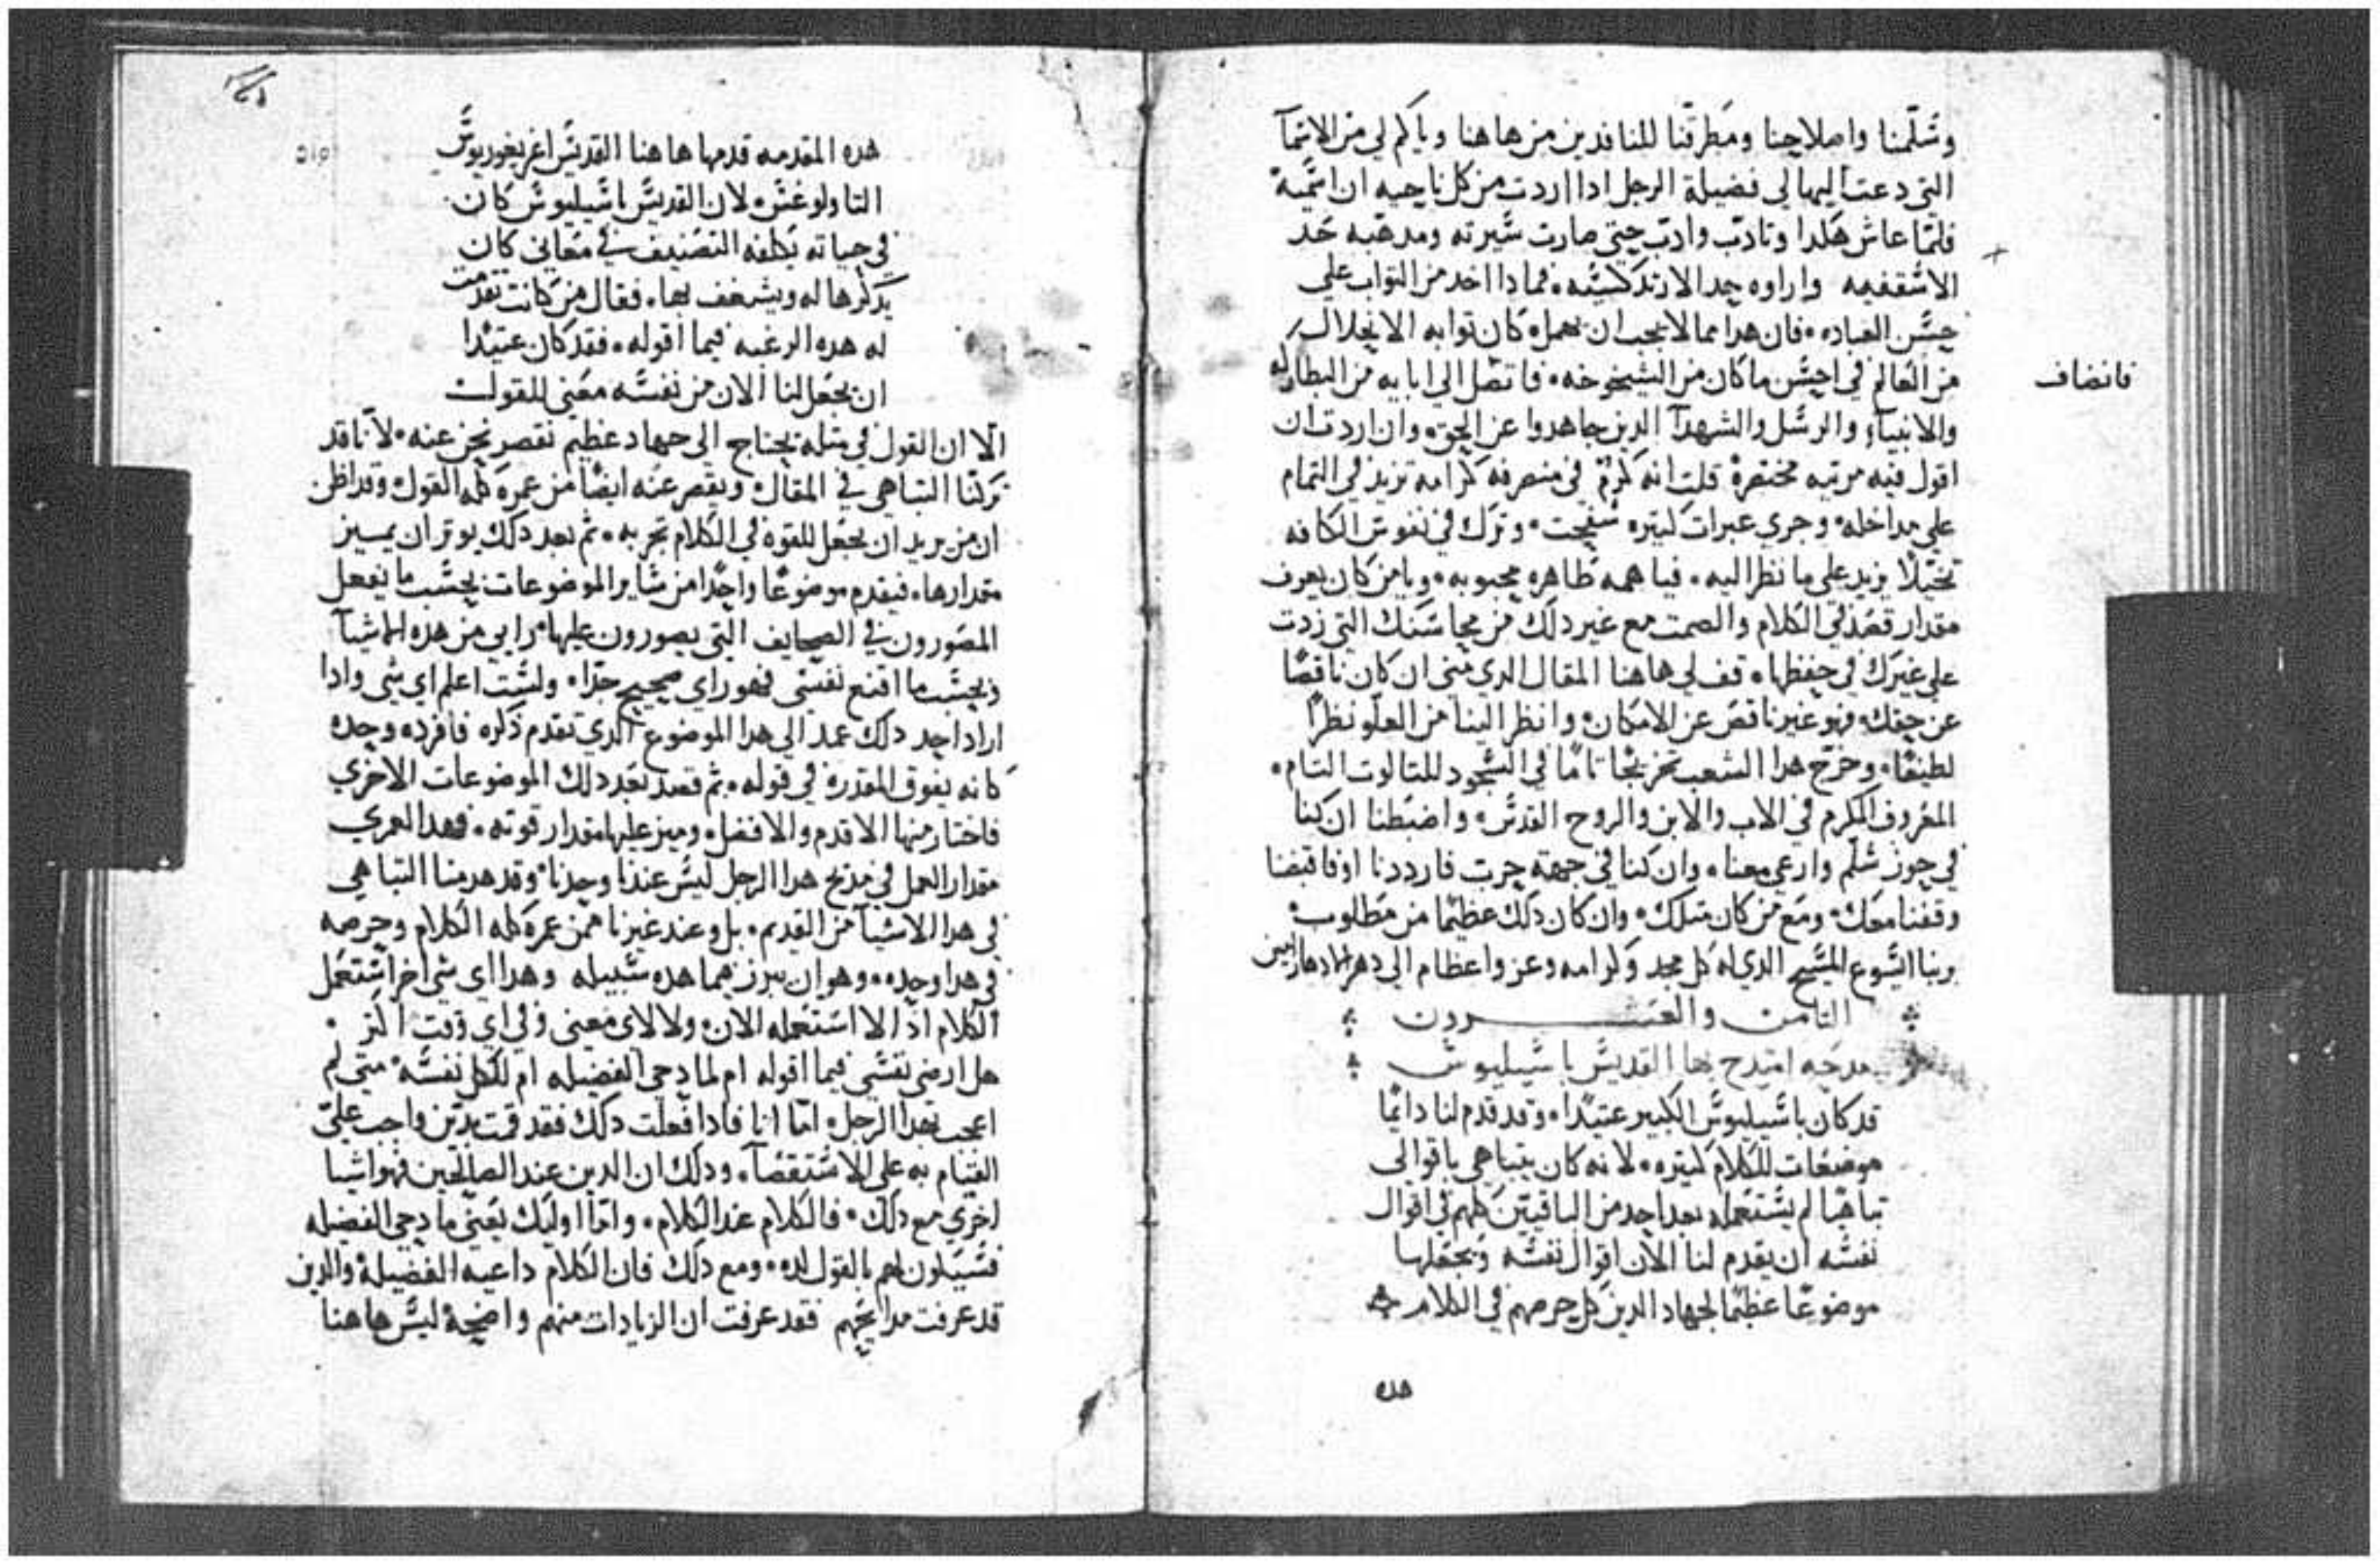 وسلمنا واصلاحنا ومطرقنا للنافدين من هاهنا وياكم لي من الاسما
التي دعت اليها لي فضيلة الرجل ادا اردت من كل ناحيه ان اسميه
فلما عاش هكدا وتادب وادب حتى صارت سيرته ومدهبه حد
الاسقفيه واراوه حد الارتدكسيه. فمادا اخد من التواب علي
حسن العباده. فان هدا مما لا يجب ان يهمل كان توابه الانحلال
من العالم في احسن ما كان من الشيخوخه. فاتصل الي ابايه من البطاركه
فانضاف
والانبيآ والرسل والشهدآ الدين جاهدوا عن الحق. وان اردت ان
اقول فيه مرتبه مختصرة قلت انه كرم في منصرفه كرامه تزيد في التمام
علي مداخله. وجري عبرات كتيره سفحت. وترك في نفوس الكافه
تخيلا يزيد علي ما نظر اليه. فيا همه ظاهره محبوبه. ويا من كان يعرف
مقدار قصد في الكلام والصمت مع غير دلك من محاسنك التي زدت
علي غيرك في حفظها. قف لي هاهنا المقال الدي مني ان كان ناقصا
عن حقك. فهو غير ناقص عن الامكان. وانظر الينا من العلو نظرا
لطيفا. وخرج هدا الشعب تخريجا تاما في السجود للتالوت التام.
المعروف المكرم في الاب والابن والروح القدس. واضبطنا ان كنا
في حوز سلم وارعي معنا. وان كنا في جهة حرب فارددنا او فاقبضنا
وقفنا معك. ومع من كان متلك. وان كان دلك عظيما من مطلوب
ربنا ايسوع المسيح الدي له كل مجد وكرامه وعز واعظام الي دهر الادهار امين
التامن والعشرون
مدحه امتدح بها القديس باسيليوس
قد كان باسيليوس الكبير عتيدا. وقد قدم لنا دائما
موضعات للكلام كتيره. لانه كان يتباهي باقوالي
تباهيا لم يستعمله بعد احد من الباقيين كلهم في اقوال
نفسه ان يقدم لنا الان اقوال نفسه ويجعلها
موضوعا عظيما لجهاد الدين كل حرصهم في الكلام
هده
هده المقدمه قدمها هاهنا القديس اغريغوريوس
التاولوغس. لان القديس باسيليوس كان
في حياته يكلفه التصنيف في معاني كان
يدكرها له ويشغف بها. فقال من كانت تقدمت
له هده الرغبه فيما اقوله. فقد كان عتيدا
ان يجعل لنا الان من نفسه معني للقول
الا ان القول في متله يحتاج الي جهاد عظيم نقصر نحن عنه. لاننا قد
تركنا التباهي في المقال. ويقصر عنه ايضا من عمره كله القول. وقد اظن
ان من يريد ان يجعل للقوه في الكلام تجربه. تم بعد دلك يوتر ان يميز
مقدارها. فيقدم موضوعا واحدا من ساير الموضوعات بحسب ما يفعل
المصورون في الصحايف التي يصورون عليها. رايي من هده الاشيآ
وبحسب ما اقنع نفسي فهو راي صحيح جدا. ولست اعلم اي شي وادا
اراد احد دلك عمد الي هدا الموضوع الدي تقدم دكره فافرده وحده
كانه يفوق المقدره في قوله. تم قصد بعد دلك الموضوعات الاخري
فاختار منها الاقدم والافضل. وميز عليها مقدار قوته. فهدا لعمري
مقدار العمل في مديح هدا الرجل ليس عندنا وحدنا. وقد هدمنا التباهي
في هدا الاشيآ من القديم. بل وعند غيرنا ممن عمره كله الكلام وحرصه
في هدا وحده. وهو ان يبرز بما هده سبيله وهدا اي شي اخر استعمل
الكلام اد الا استعمله الان. ولا لاي معني وفي اي وقت اكتر
هل ارضي نفسي فيما اقوله ام لمادحي الفضيله ام للكل نفسه. متي لم
اعجب بهدا الرجل. اما انا فادا فعلت دلك فقد قمت بدين واجب علي
القيام به علي الاستقصآ. ودلك ان الدين عند الصالحين فهو اشيا
اخري مع دلك. فالكلام عند الكلام. واما اوليك يعني مادحي الفضيله
فسيكون لهم بالقول لده. ومع دلك فان الكلام داعيه الفضيلة والدين
قد عرفت مدايحهم فقد عرفت ان الزيادات منهم واضحة ليس هاهنا